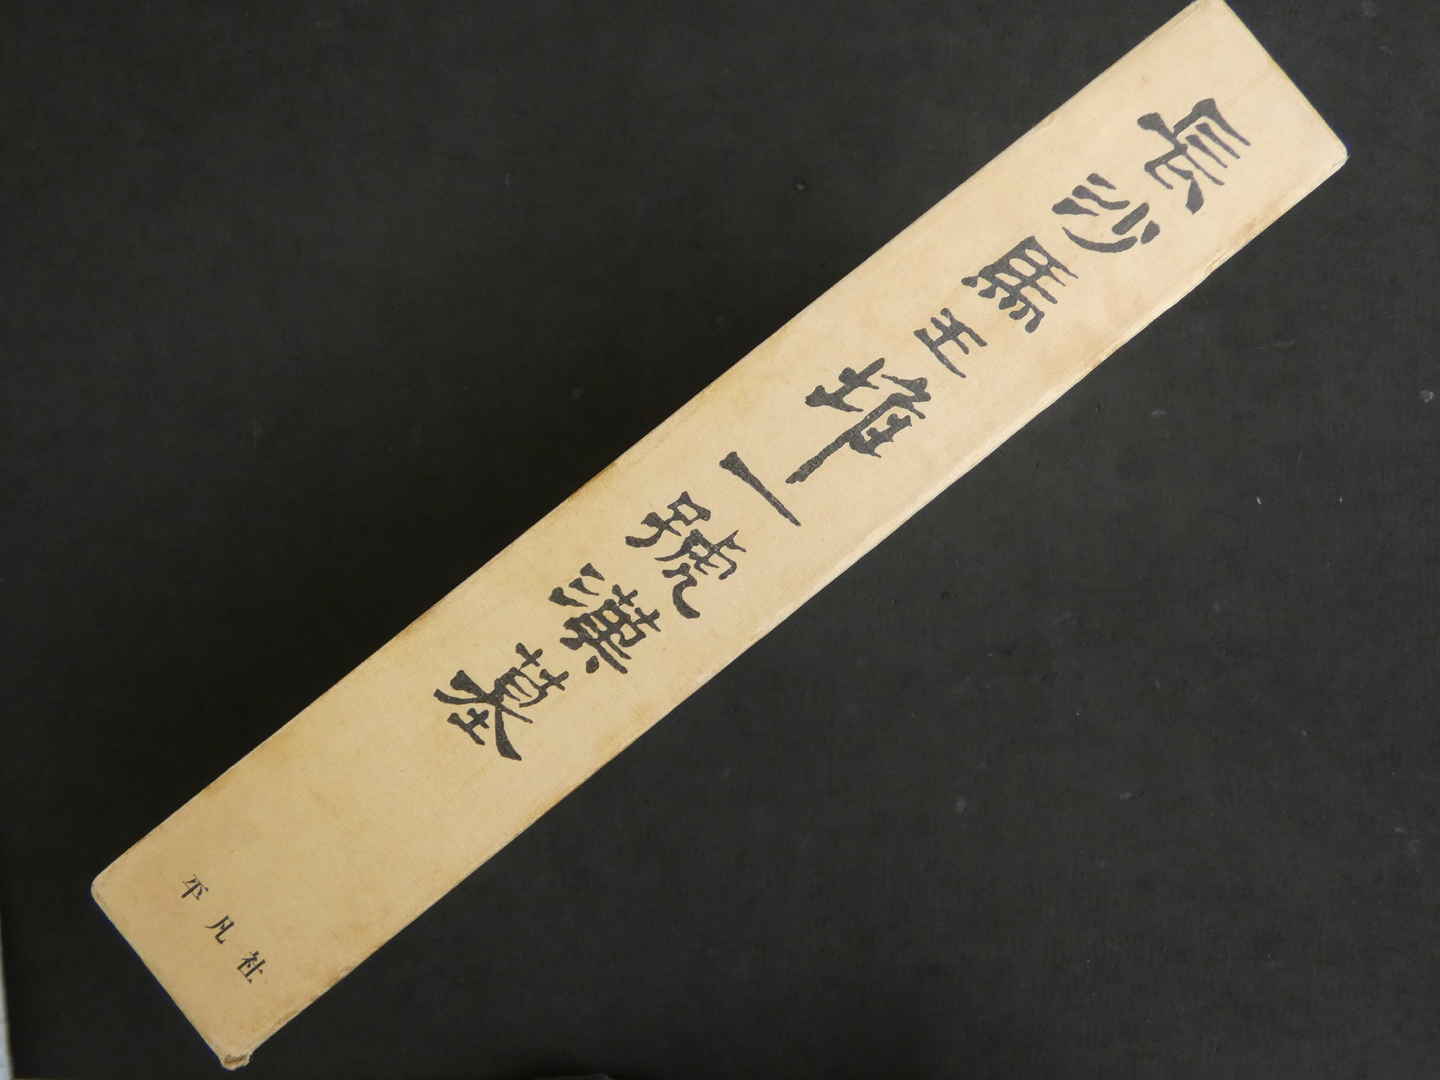 長沙馬王堆一號漢墓
平凡社